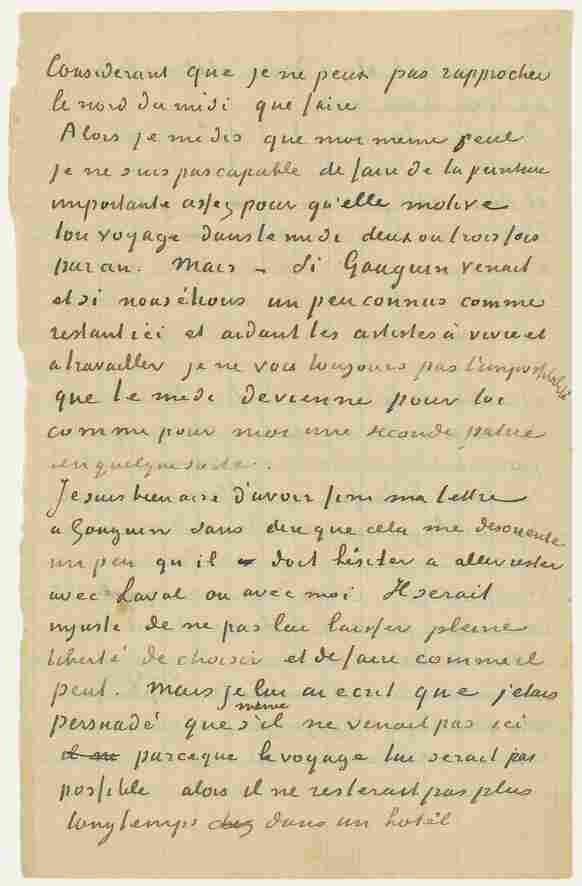 Considerant que je ne peux pas rapprocher
le nord du midi que faire
Alors je me dis que moi meme seul
je ne suis pas capable de faire de la peinture
importante assez pour qu'elle motive
ton voyage dans le midi deux ou trois fois
par an. Mais – si Gauguin venait
et si nous étions un peu connus comme
restant ici et aidant les artistes à vivre et
a travailler je ne vois toujours pas l'impossibilité
que le midi devienne pour toi
comme pour moi une seconde patrie
en quelque sorte.
Je suis bien aise d'avoir fini ma lettre
a Gauguin sans dire que cela me desoriente
un peu qu'il doit hésiter a aller rester
avec Laval ou avec moi Il serait
injuste de ne pas lui laisser pleine
liberté de choisir et de faire comme il
peut. Mais je lui ai ecrit que j'etais
persuadé que s'il même ne venait pas ici
il ne parceque le voyage lui serait pas
possible alors il ne resterait pas plus
longtemps chez dans un hotel